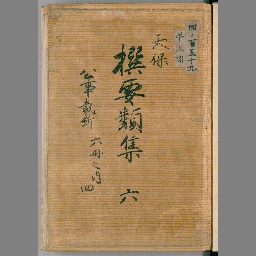 天保
撰要類集 六
公事裁許
六冊之内 四